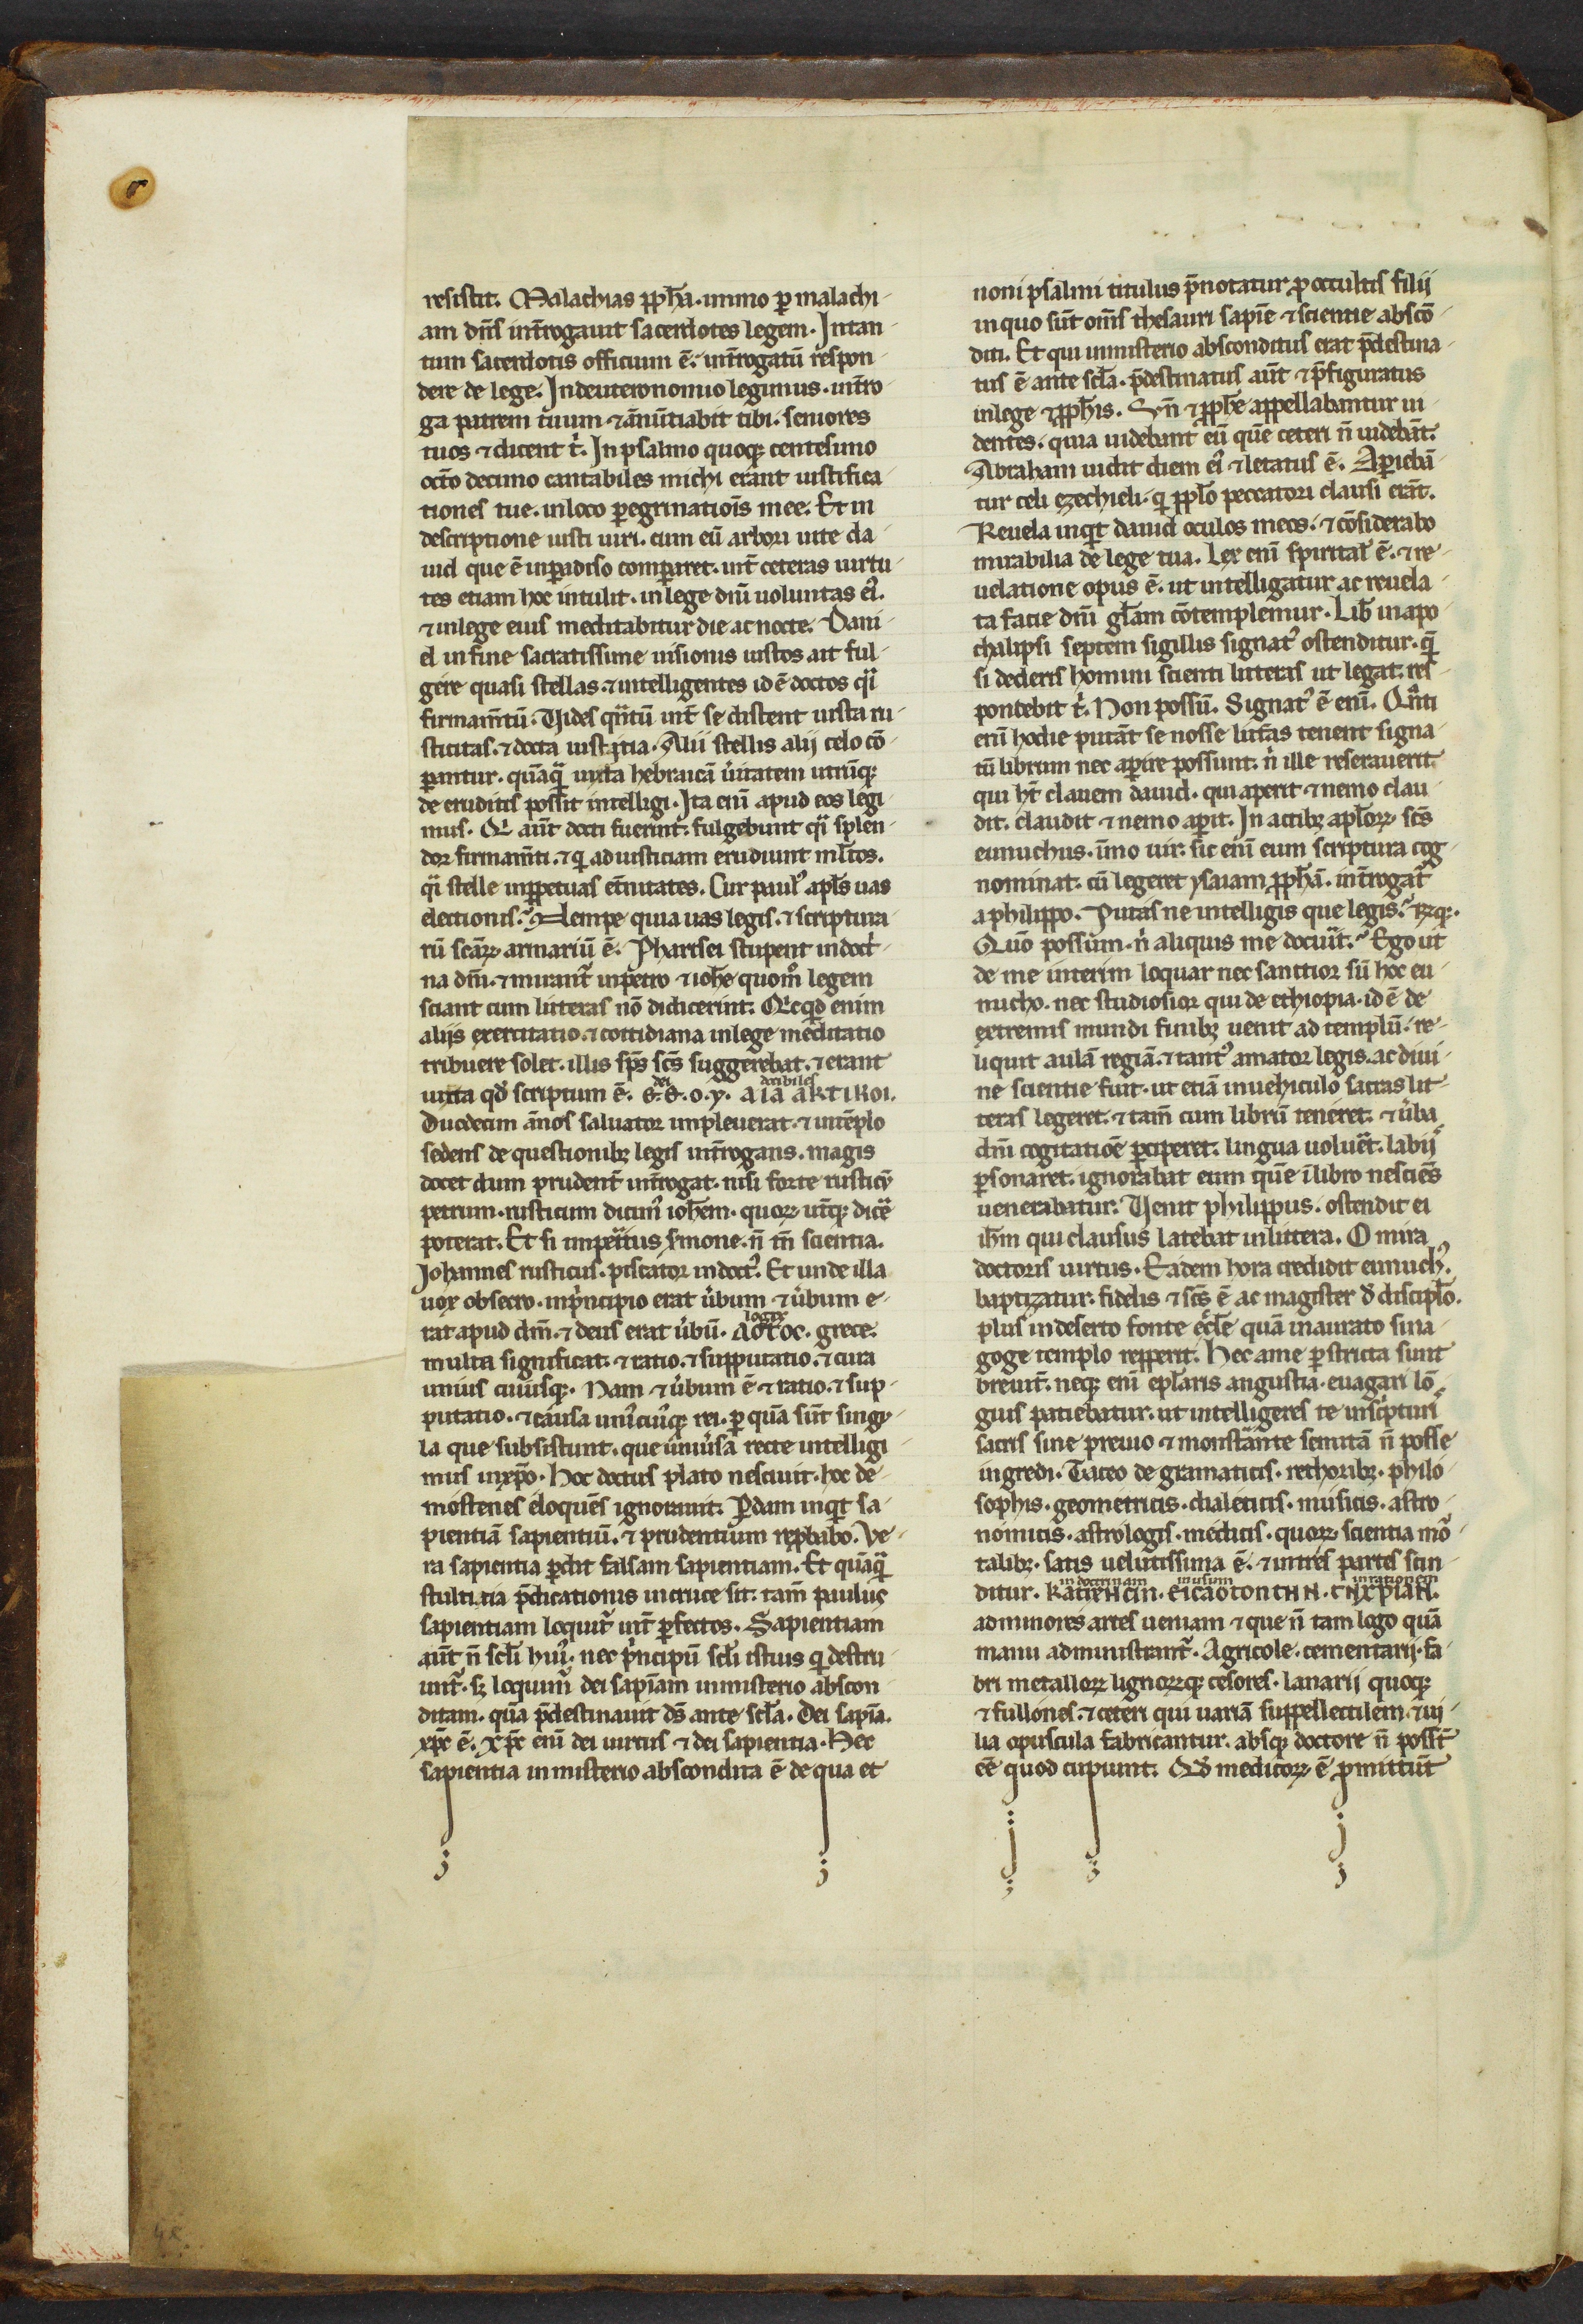 resistit. Malachias ꝓph̄a. immo ꝑ malachi-
am dn̄s int̄rogauit sacerdotes legem. Intan-
tum sacerdotis officium ē. int̄rogatū respon-
dere de lege. Indeuteronomio legimus. int̄ro
ga patrem tuum ⁊ ānūtiabit tibi. seniores
tuos ⁊ dicent t͛. In psalmo quoqꝫ centesimo
octo decimo cantabiles michi erant iustifica-
tiones tue. inloco ꝑegrinatiōis mee. Et in
descriptione iusti uiri. cum eū arbori uite da-
uid que ē inꝑadiso comꝑaret. int̄ ceteras uirtu-
tes etiam hoc intulit. in lege dn̄i uoluntas ei᷒.
⁊ inlege eius meditabitur die ac nocte. Dani-
el in fine sacratissime uisionis iustos ait ful-
gere quasi stellas. ⁊ intelligentes id ē doctos qͣi
firmam̄tū. Uides qͣntū int̄ se distent iusta ru-
sticitas. ⁊ docta iusticia. Alii stellis alij celo cō-
ꝑantur. quāqͣꝫ iuxta hebraicā u͛itatem utrūqꝫ
de eruditis possit intelligi. Ita enī apud eos legi-
mus. Qͥ aut̄ docti fuerint: fulgebunt qͣi splen-
dor firmam̄ti. ⁊ qͥ ad iusticiam erudiunt ml̄tos.
qͣi stelle inꝑpetuas et̄nitates. Cur paul᷒ apl̄s uas
electionis? Nempe quia uas legis. ⁊ scriptura
rū scāꝝ armariū ē. Pharisei stupent in doct͛-
na dn̄i. ⁊ mirant᷑ inpetro ⁊ ioh̄e quom̊ legem
sciant cum litteras nō didicerint. Qͥcqͥd enim
alijs exercitatio. ⁊ cottidiana inlege meditatio
tribuere solet. illis sp̄s sc̄s suggerebat. ⁊ erant
dei docibiles
iuxta qd̄ scriptum ē. ꝋ.ꝋ.o.y. aia aktikoi.
Duodecim ānos saluator impleuerat. ⁊ intēplo
sedens de questionibꝫ legis int̄rogans. magis
docet dum prudent᷑ int̄rogat. nisi forte rusticū
petrum. rusticum dicim᷒ ioh̄em. quoꝝ ut͛qꝫ dicē
poterat. Et si imperitus s͛mone. n̄ tn̄ scientia.
Johannes rusticus. piscator indoct᷒. Et unde illa
uox obsecro. inpͥncipio erat u͛bum ⁊ u͛bum e-
logix
rat apud dm̄. ⁊ deus erat u͛bū. aotoc. grece
multa significat. ⁊ ratio. ⁊ supputatio. ⁊ cura
unius cuiusqꝫ. Nam ⁊ u͛bum ē ⁊ ratio. ⁊ sup-
putatio. ⁊ causa uni᷒ciu᷒qꝫ rei. ꝑ quā sūt singu-
la que subsistunt. que uniu͛sa recte intelligi-
mus inxp̄o. Hoc doctus plato nesciuit. hoc de-
mostenes eloquēs ignorauit. Ꝑdam inqͥt sa-
pientiā sapientiū. ⁊ prudentium reꝓbabo. Ve-
ra sapientia ꝑdet falsam sapientiam. Et quāqͣꝫ
stultitia p̄dicationis incruce sit: tam̄ paulus
sapientiam loquit᷑ int̄ ꝑfectos. Sapientiam
aut̄ n̄ scl̄i hui᷒. nec pͥncipū scl̄i istius qͥ destru-
unt᷑. sꝫ loquim᷑ dei sapiam inmisterio abscon-
ditam. quā p̄destinauit ds̄ ante scl̄a. Dei sapīa.
xp̄c ē. xp̄c enī dei uirtus ⁊ dei sapientia. Hec
sapientia inmisterio abscondita ē de qua et
noni psalmi titulus p̄notatur ꝓ occultis filij
in quo sūt om̄s thesauri sapiē ⁊ scientie abscō-
diti. Et qui inmisterio absconditus erat p̄destina-
tus ē ante scl̄a. p̄destinatus aūt ⁊ p̄figuratus
inlege ⁊ ꝓph̄is. Vn̄ ⁊ ꝓph̄e appellabantur ui-
dentes. quia uidebant eū quē ceteri n̄ uidebāt.
Abraham uidit diem ei᷒ ⁊ letatus ē. Aꝑiebā-
tur celi ezechieli. qͥ ppl̄o peccatori clausi erāt.
Reuela inqͥt dauid oculos meos. ⁊ cōsiderabo
mirabilia de lege tua. Lex enī spirital᷒ ē. ⁊ re-
uelatione opus ē. ut intelligatur ac reuela-
ta facie dn̄i gl̄am cōtemplemur. Lib͛ inapo-
chalipsi septem sigillis signat᷒ ostenditur. qͥ
si dederis homini scienti litteras ut legat. res-
pondebit t͛. Non possū. Signat᷒ ē enī. Qͣnti
enī hodie putāt se nosse lit̄as tenent signa-
tū librum nec aꝑire possunt. n͛ ille reserauerit
qui ht̄ clauem dauid. qui aperit ⁊ nemo clau-
dit. claudit ⁊ nemo aꝑit. In actibꝫ apl̄oꝝ sc̄s
eunuchus. ūmo uir. sic enī eum scriptura cog-
nominat. cū legeret ysaiam ꝓph̄ā. int̄rogat᷑
a philippo. Putas ne intelligis que legis? Rꝫqꝫ.
Quō possum. n͛ aliquis me docuīt? Ego ut
de me interim loquar nec sanctior sū hoc eu-
nucho. nec studiosior qui de ethiopia. id ē de
extremis mundi finibꝫ uenit ad templū. re-
liquit aulā regiā. ⁊ tant᷒ amator legis. ac diui-
ne scientie fuit. ut etiā inuehiculo sacras lit-
teras legeret. ⁊ tam̄ cum librū teneret. ⁊ u͛ba
dn̄i cogitatiōe ꝑciperet. lingua uoluēt. labijs
ꝑsonaret. ignorabat eum quē īlibro nesciēs
uenerabatur. Uenit philippus. ostendit ei
ih̄m qui clausus latebat inlittera. O mira
doctoris uirtus. Eadem hora credidit eunuch᷒.
baptizatur. fidelis ⁊ sc̄s ē ac magister d̄ discipl̄o.
plus indeserto fonte eccl̄e quā inaurato sina-
goge templo repperit. Hec ame ꝑstricta sunt
breuit᷑. neqꝫ enī epl̄aris angustia. euagari lō-
gius patiebatur. ut intelligeres te inscͥpturis
sacris sine preuio ⁊ monstrante semitā n̄ posse
ingredi. Taceo de gramaticis. rethoribꝫ. philo-
sophis. geometricis. dialeticis. musicis. astro-
nomicis. astrologis. medicis. quoꝝ scientia mo͛-
talibꝫ. satis uelutissima ē. ⁊ intres partes scin-
indoctrinam inusum inrationem
ditur. katieHcin. eicaotontHN. cNxpiaN.
ad minores artes ueniam ⁊ que n̄ tam logo quā
manu administrant᷑. Agricole. cementarij. fa-
bri metalloꝝ lignoꝝqꝫ cesores. lanarij quoqꝫ
⁊ fullones. ⁊ ceteri qui uariā suppellectilem. ⁊ ui-
lia opuscula fabricantur. absqꝫ doctore n̄ possūt
eē quod cupiunt. Qd̄ medicoꝝ ē ꝓmittūt